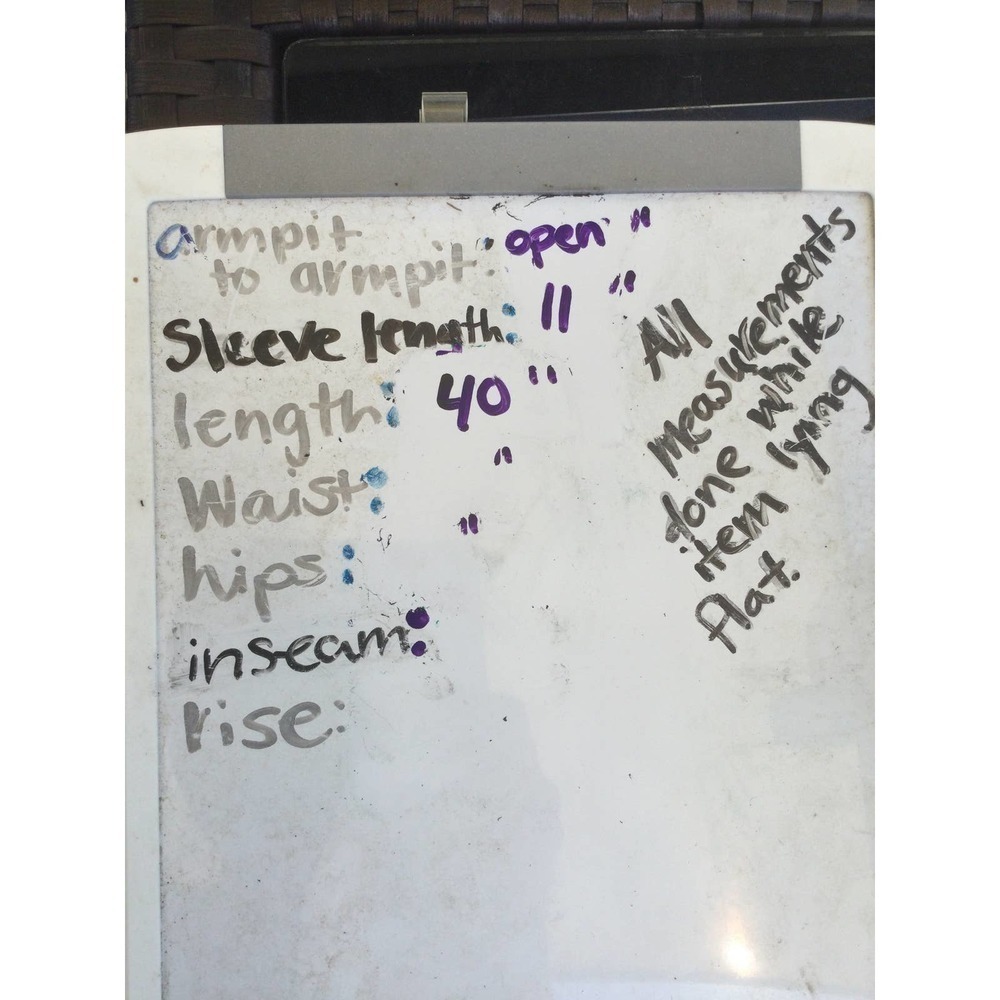 armpit
to armpit: open "
Sleeve length: 11 "
length: 40 "
Waist: "
hips: "
inseam:
rise:
All
measurements
done while
item lying
flat.